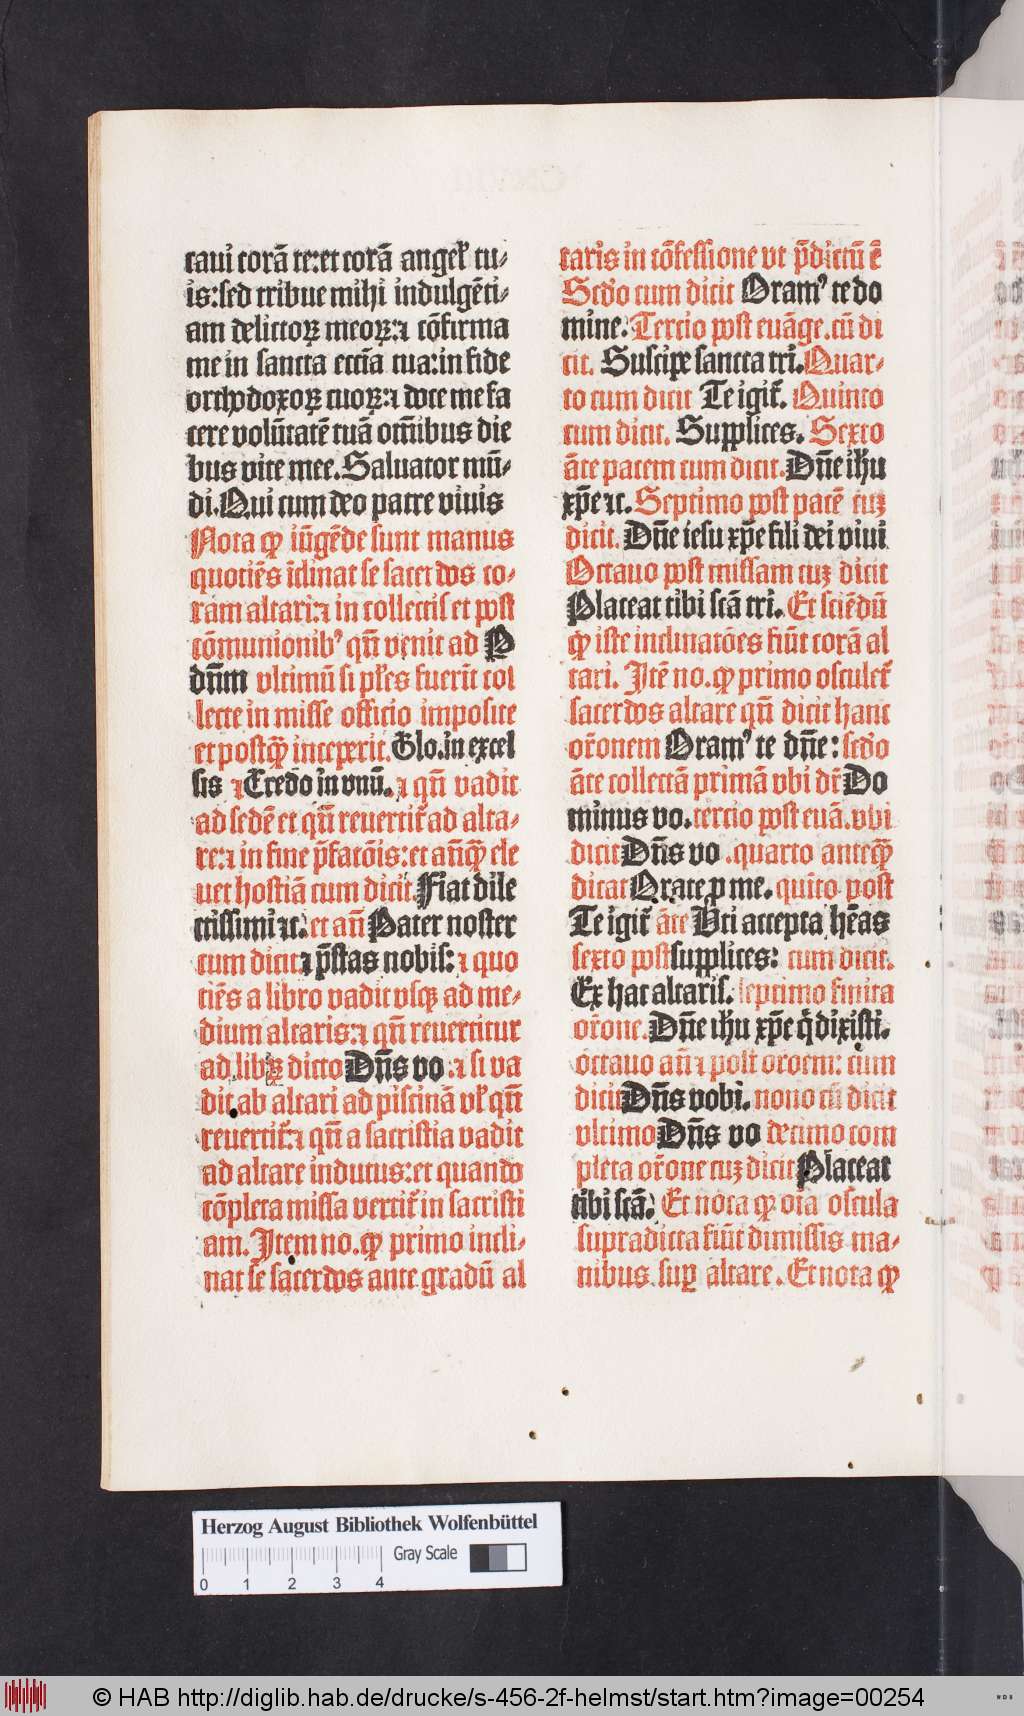 caui corā te: et corā angel' tu⸗
is: sed tribue mihi indulgēti⸗
am delictoꝝ meoꝝ: ⁊ cōfirma
me in sancta ecc̄ia tua: in fide
orthodoxoꝝ tuoꝝ: ⁊ doce me fa
cere volūtatē tuā om̄ibus die
bus vite mee. Saluator mū⸗
di. Qui cum deo patre viuis
Nota ꝙ iūgēde sunt manus
quotiēs īclinat se sacerdos co⸗
ram altari: ⁊ in collectis et post
cōmunionib' qn̄ venit ad P
dn̄m vltimū si pl'es fuerīt col
lecte in misse officio imposite
et postꝙ̄ inceperit. Glo. in excel
sis ⁊ Credo in vnū. ⁊ qn̄ vadit
ad sedē et qn̄ reuertit̄ ad alta⸗
re: ⁊ in fine p̄fatōis: et an̄ꝙ̄ ele
uet hostiā cum dicit Fiat dile
ctissimi ⁊c. et an̄ Pater noster
cum dicit. ⁊ p̄stas nobis: ⁊ quo
tiēs a libro vadit vsqꝫ ad me⸗
dium altaris: ⁊ qn̄ reuertitur
ad libꝝ dicto Dn̄s vo: ⁊ si va
dit ab altari ad piscinā vl' qn̄
reuertit̄: ⁊ qn̄ a sacristia vadit
ad altare indutus: et quando
cōpleta missa vertit̄ in sacristi
am. Item no. ꝙ primo incli⸗
nat se sacerdos ante gradū al
taris in cōfessione vt p̄dictū ē
Scd'o cum dicit Oram' te do
mine. Tercio post euāge. cū di
cit. Suscipe sancta tri. Quar⸗
to cum dicit Te igit̄. Quinto
cum dicit. Supplices. Sexto
āte pacem cum dicit. Dn̄e ihu
xp̄e ⁊c. Septimo post pacē cuꝫ
dicit. Dn̄e iesu xp̄e fili dei viui
Octauo post missam cuꝫ dicit
Placeat tibi scā tri. Et sciēdū
ꝙ iste inclinatōes fiūt corā al
tari. Itē no. ꝙ primo osculet̄
sacerdos altare qn̄ dicit hanc
or̄onem Oram' te dn̄e: scd'o
āte collectā primā vbi dr̄ Do
minus vo. tercio post euā. vbi
dicit Dn̄s vo. quarto anteꝙ̄
dicat Orate ꝓ me. quīto post
Te igit̄ āte Uti accepta hēas
sexto post supplices: cum dicit.
Ex hac altaris. septimo finita
or̄one. Dn̄e ihu xp̄e q̄ dixisti.
octauo an̄ ⁊ post oroem: cum
dicit Dn̄s vobi. nono cū dicit
vltimo Dn̄s vo decimo com
pleta or̄one cuꝫ dicit Placeat
tibi scā. Et nota ꝙ oīa oscula
supradicta fiūt dimissis ma⸗
nibus suꝑ altare. Et nota ꝙ
Herzog August Bibliothek Wolfenbüttel
Gray Scale
0 1 2 3 4
© HAB http://diglib.hab.de/drucke/s-456-2f-helmst/start.htm?image=00254